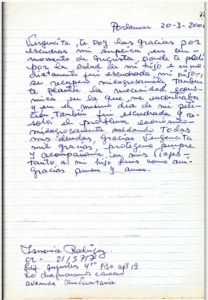 Porlamar 20-3-200
Virgencita, te doy las gracias por
escuchar mi suplica en un
momento de angustia, donde te pedí
por la salud de mi hijo e inme
diatamente fui escuchada, mi hijo,
se recupero milagrosamente. También
te plantié la necesidad econó
mica en la que me encontraba
y en el mismo dia de mi pe
tición también fui escuchada y re
solví el problema económico
milagrosamente saldando Todas
mis deudas, gracias Virgencita
mil gracias, protegeme siempre
y acompañame en mis viajes
tanto al mi hijo como a mi
gracias amen y amen.
Edf. 4to Piso apt 19
avenida